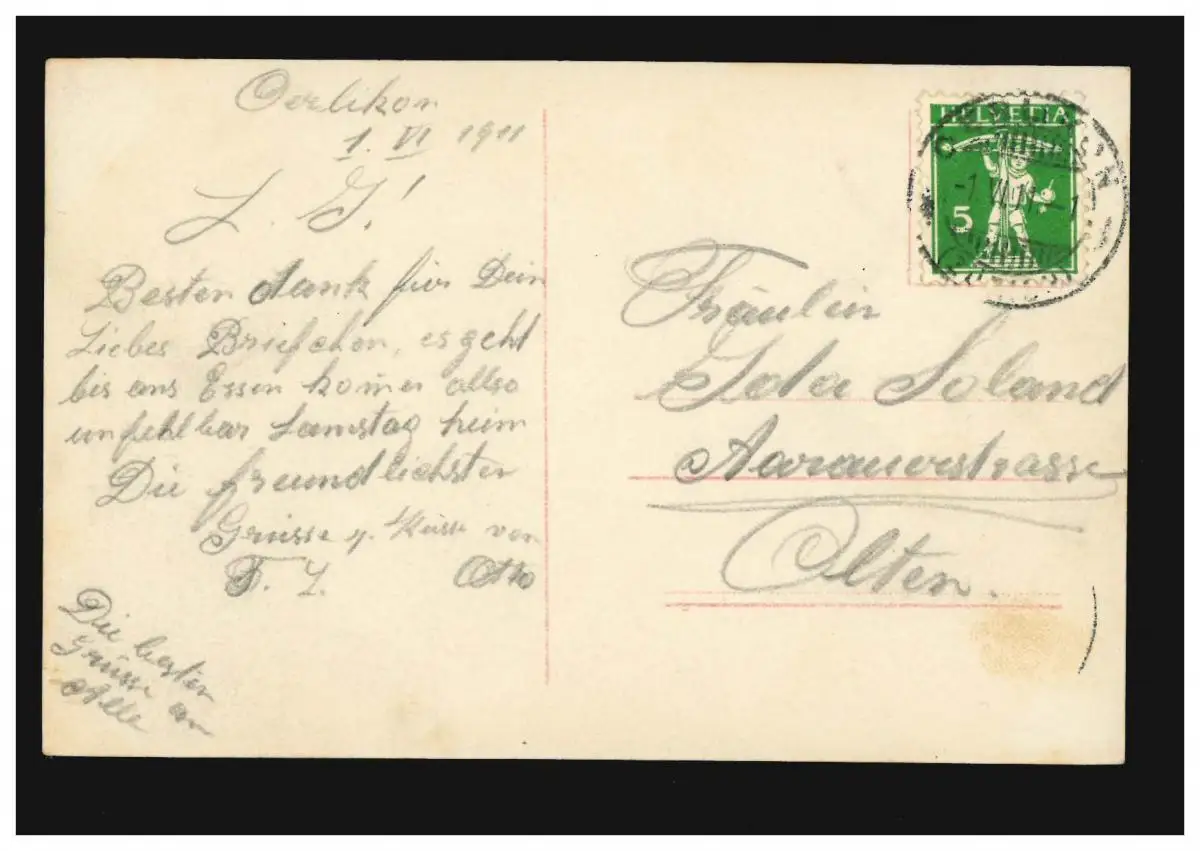 Oerlikon
1. VI 1911
L. I!
Besten dank für Dein
Liebes Briefchen, es geht
bis ans Essen komme allso
unfehlbar Samstag heim
Die freundlichsten
Grüsse u. Küsse von
Otto
Die besten
Grüsse an
Alle
HELVETIA
5
Fräulein
Ida Soland
Aarauerstrasse
Olten.